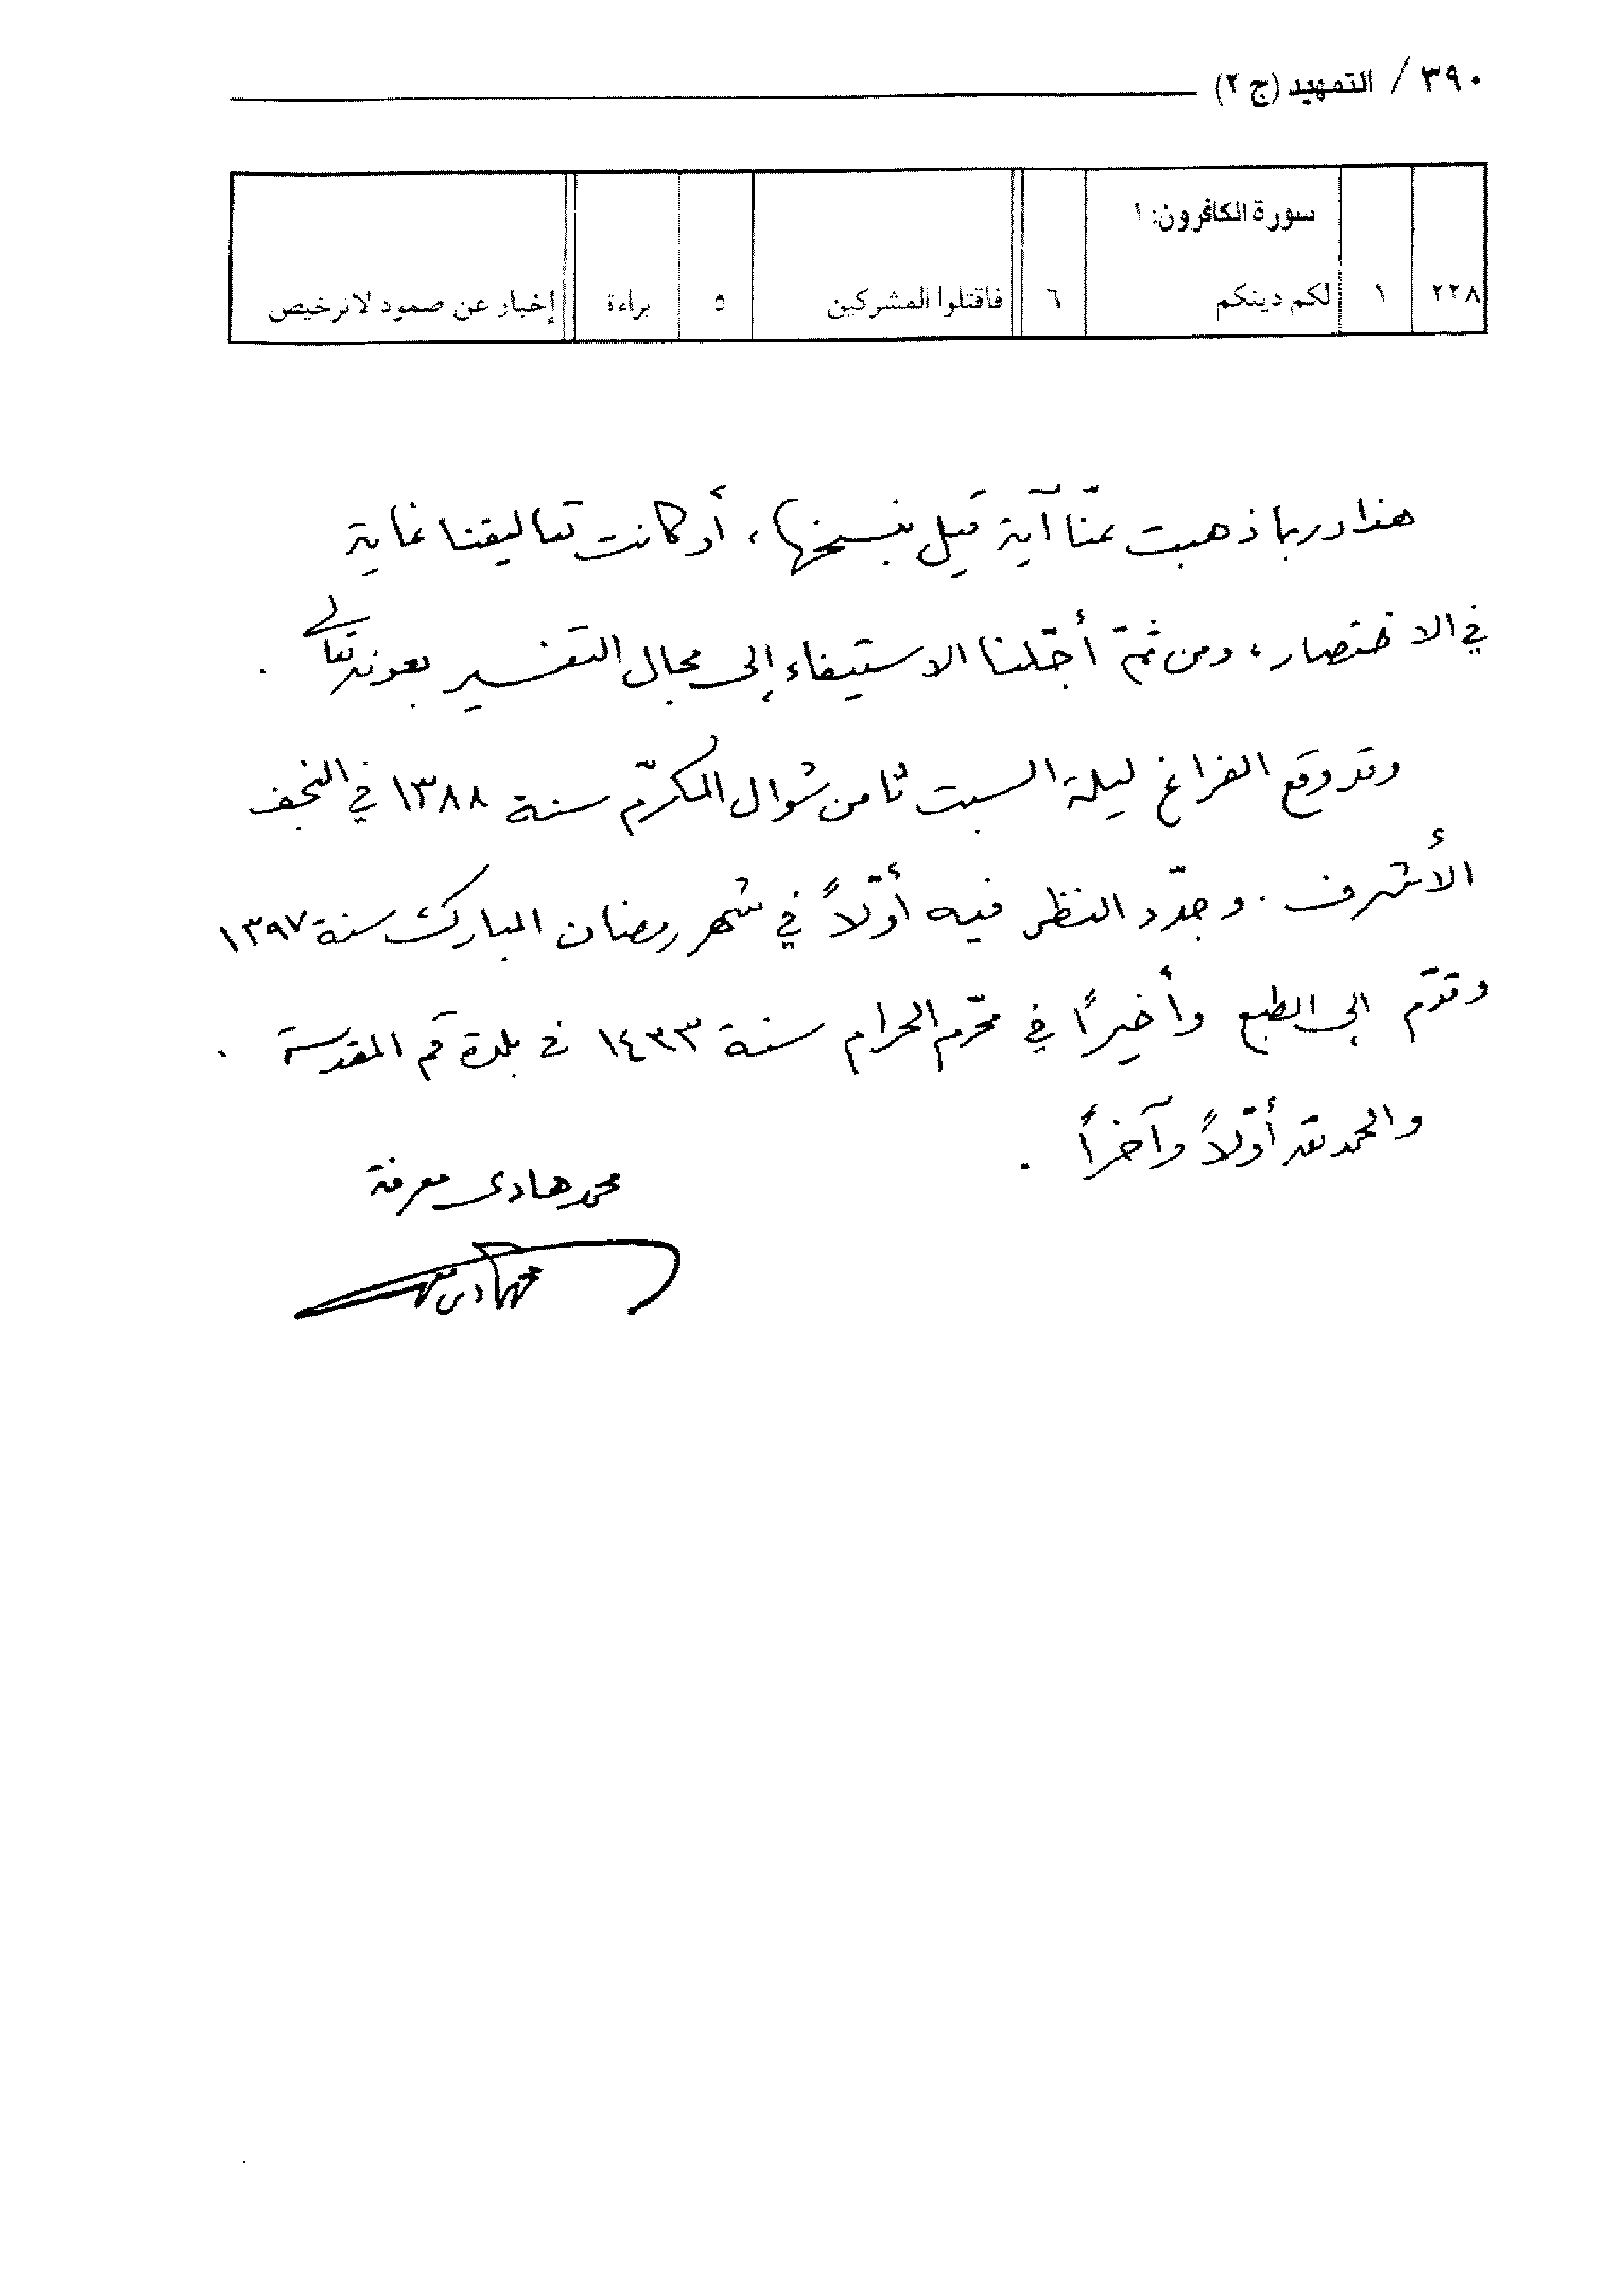 ٣٩٠ / التمهيد (ج ٢)
سورة الكافرون: ١
٢٢٨ ١ لكم دينكم ٦ فاقتلوا المشركين ٥ براءة إخبار عن صمود لاترخيص
هذا وربما ذهبت عنّا آية قيل بنسخها، أو كانت تعاليقنا غاية
في الاختصار، ومن ثمّ أجّلنا الاستيفاء إلى مجال التفسير بعونه تعالى .
وقد وقع الفراغ ليلة السبت ثامن شوال المكرّم سنة ١٣٨٨ في النجف
الأشرف . وجدّد النظر فيه أوّلاً في شهر رمضان المبارك سنة ١٣٩٧
وقدّم إلى الطبع وأخيراً في محرّم الحرام سنة ١٤٣٣ في بلدة قم المقدسة .
والحمد لله أوّلاً وآخراً .
محمد هادى معرفة